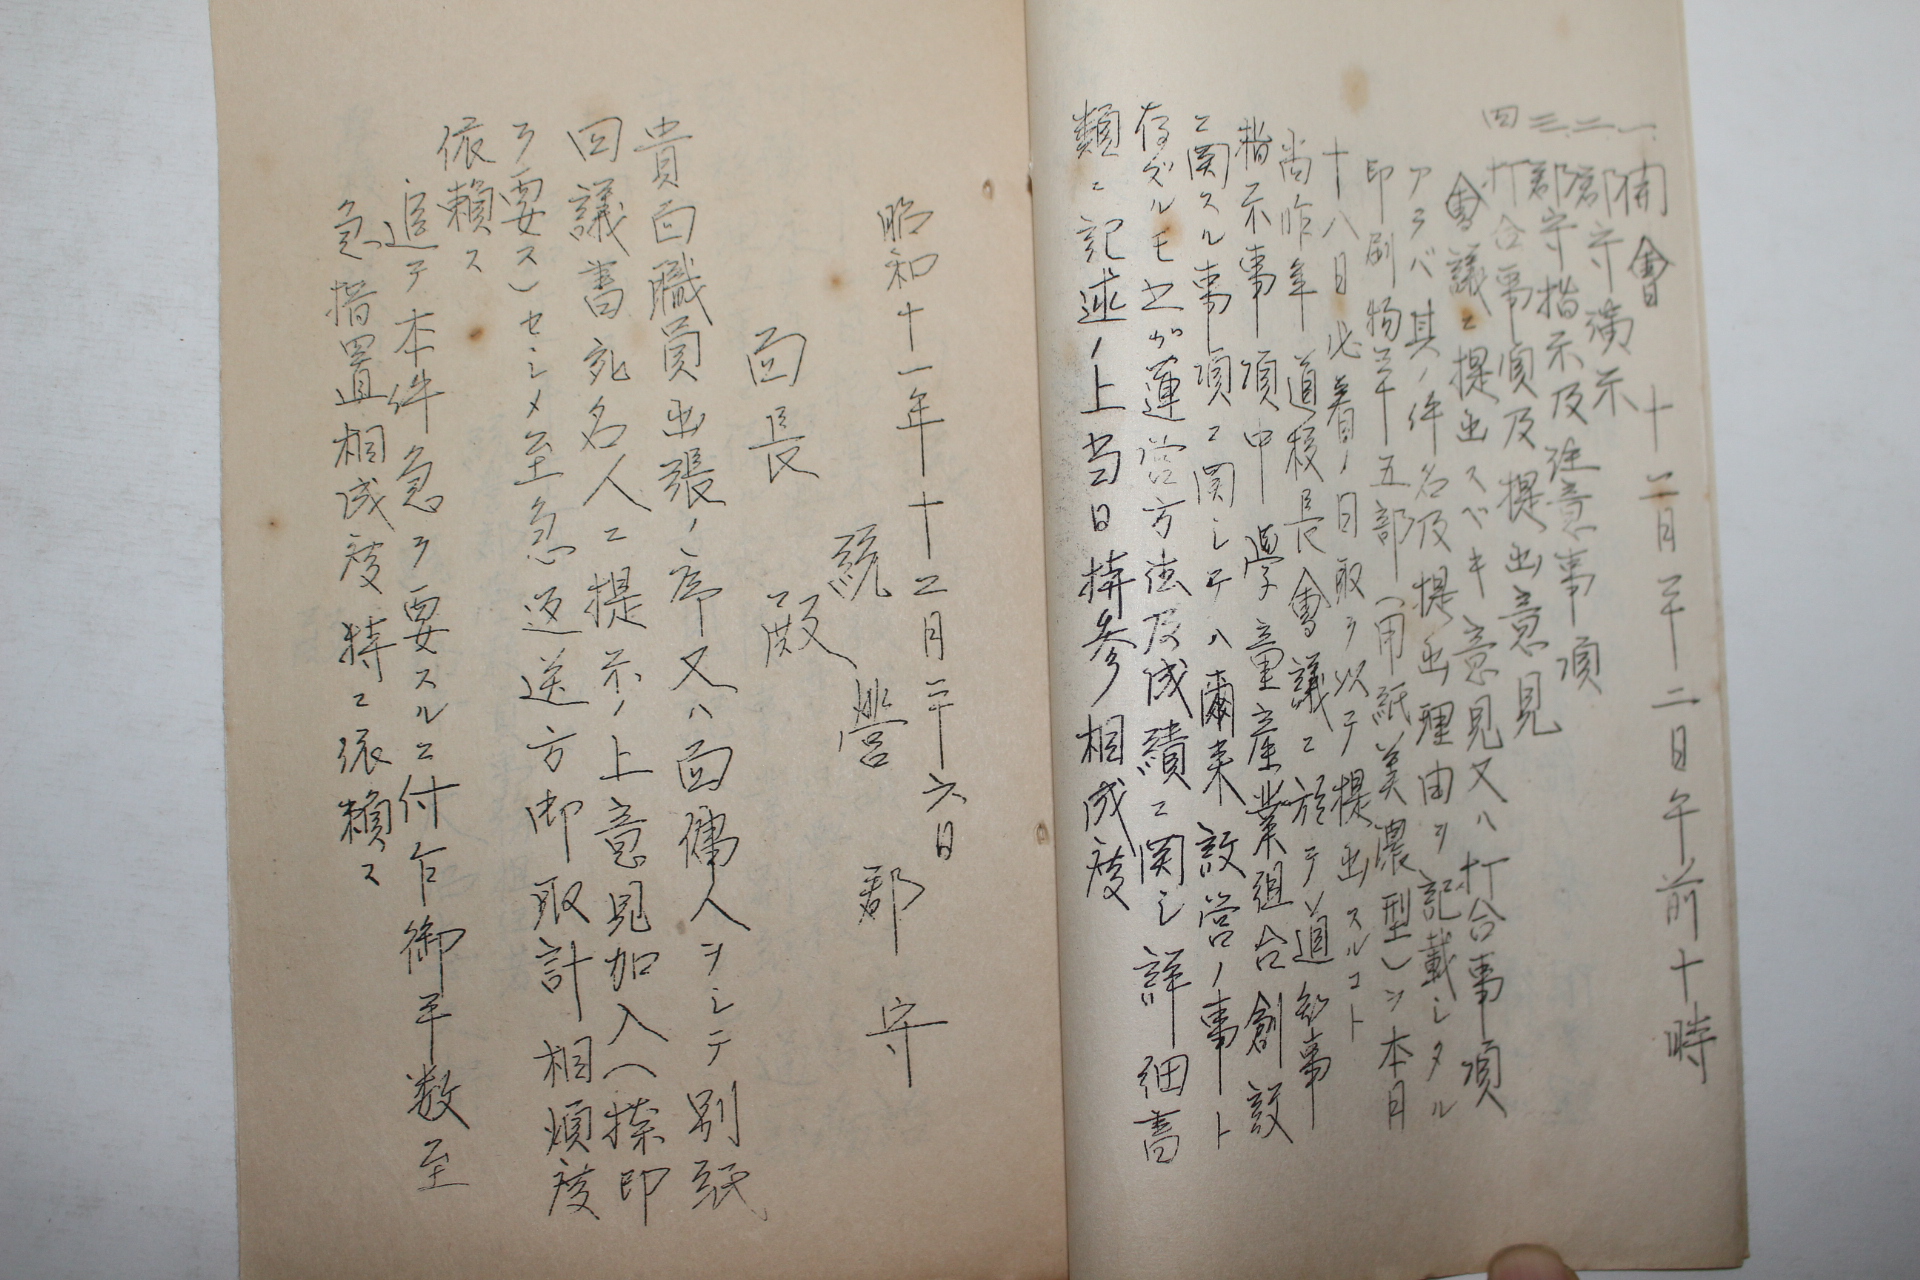 一、開會 十二月二十二日午前十時
二、郡守演示
三、郡守指示及注意事項
四 打合事項及提出意見
會議ニ提出スベキ意見又ハ打合事項
アラバ其ノ件名及提出理由ヲ記載シタル
印刷物二十五部（用紙美濃型）ヲ本月
十八日必着ノ日取ヲ以テ提出スルコト
尚昨年道校長會議ニ於テ道知事
指示事項中學童産業組合創設
ニ関スル事項ニ関シテハ爾来設営ノ事ト
存ズルモ之ガ運営方法及成績ニ関シ詳細書
類ニ記述ノ上当日持参相成度
昭和十一年十二月二十六日
統營郡守
面長殿
貴面職員出張ノ序又ハ面傭人ヲシテ別紙
回議書宛名人ニ提示ノ上意見加入（捺印
ヲ要ス）セシメ至急返送方御取計相煩度
依賴ス
追テ本件急ヲ要スルニ付乍御手数至
急措置相成度特ニ依賴ス